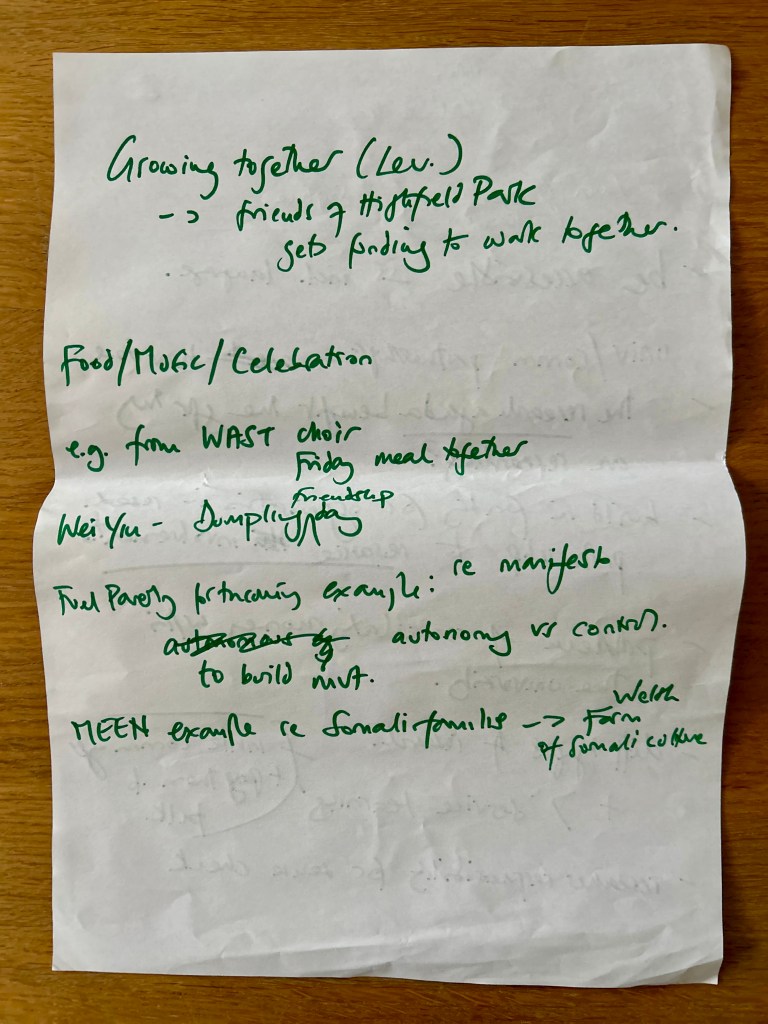 Growing together (Lev.)
-> friends of Highfield Park
gets funding to work together.
Food/Music/Celebration
e.g. from WAST choir
Friday meal together
friendship
Wei Yin - Dumpling day
Fuel Poverty example: re manifesto
autonomy vs control.
to build
MEEN example re Somali families -> Welsh
Farm
of Somali culture